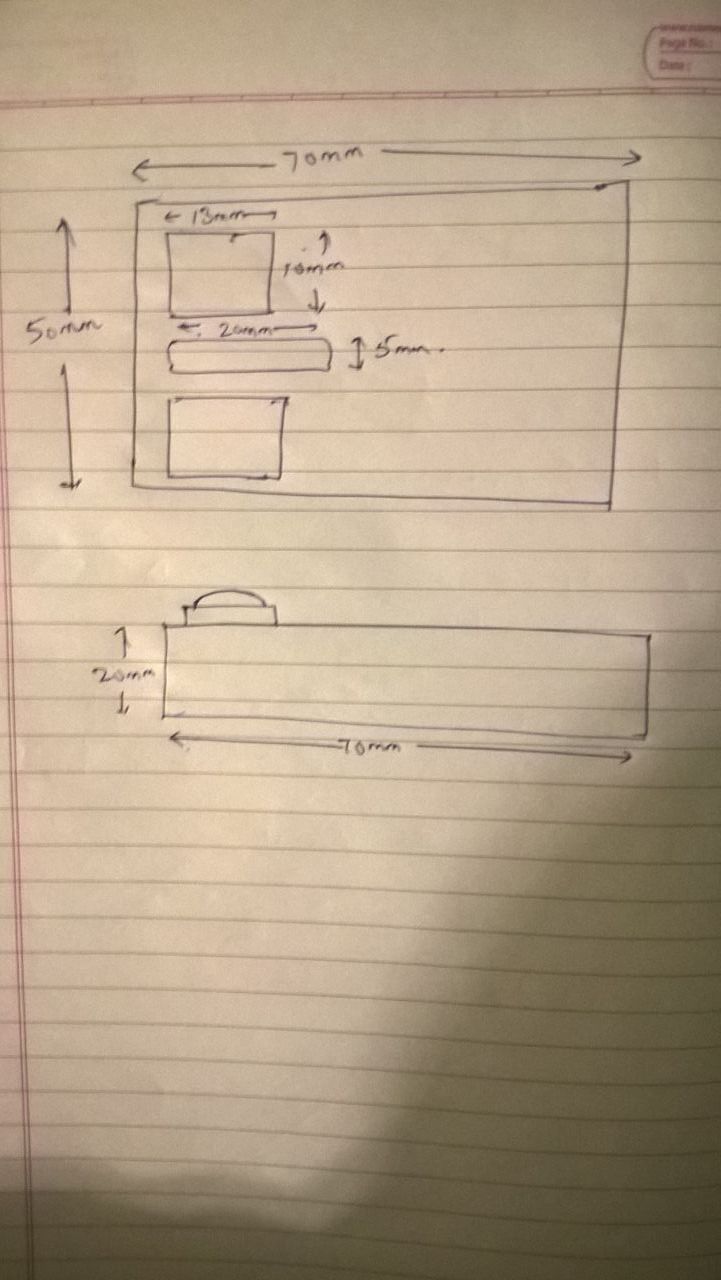 Page No.:
Date:
70mm
13mm
10mm
50mm
20mm
5mm.
20mm
70mm